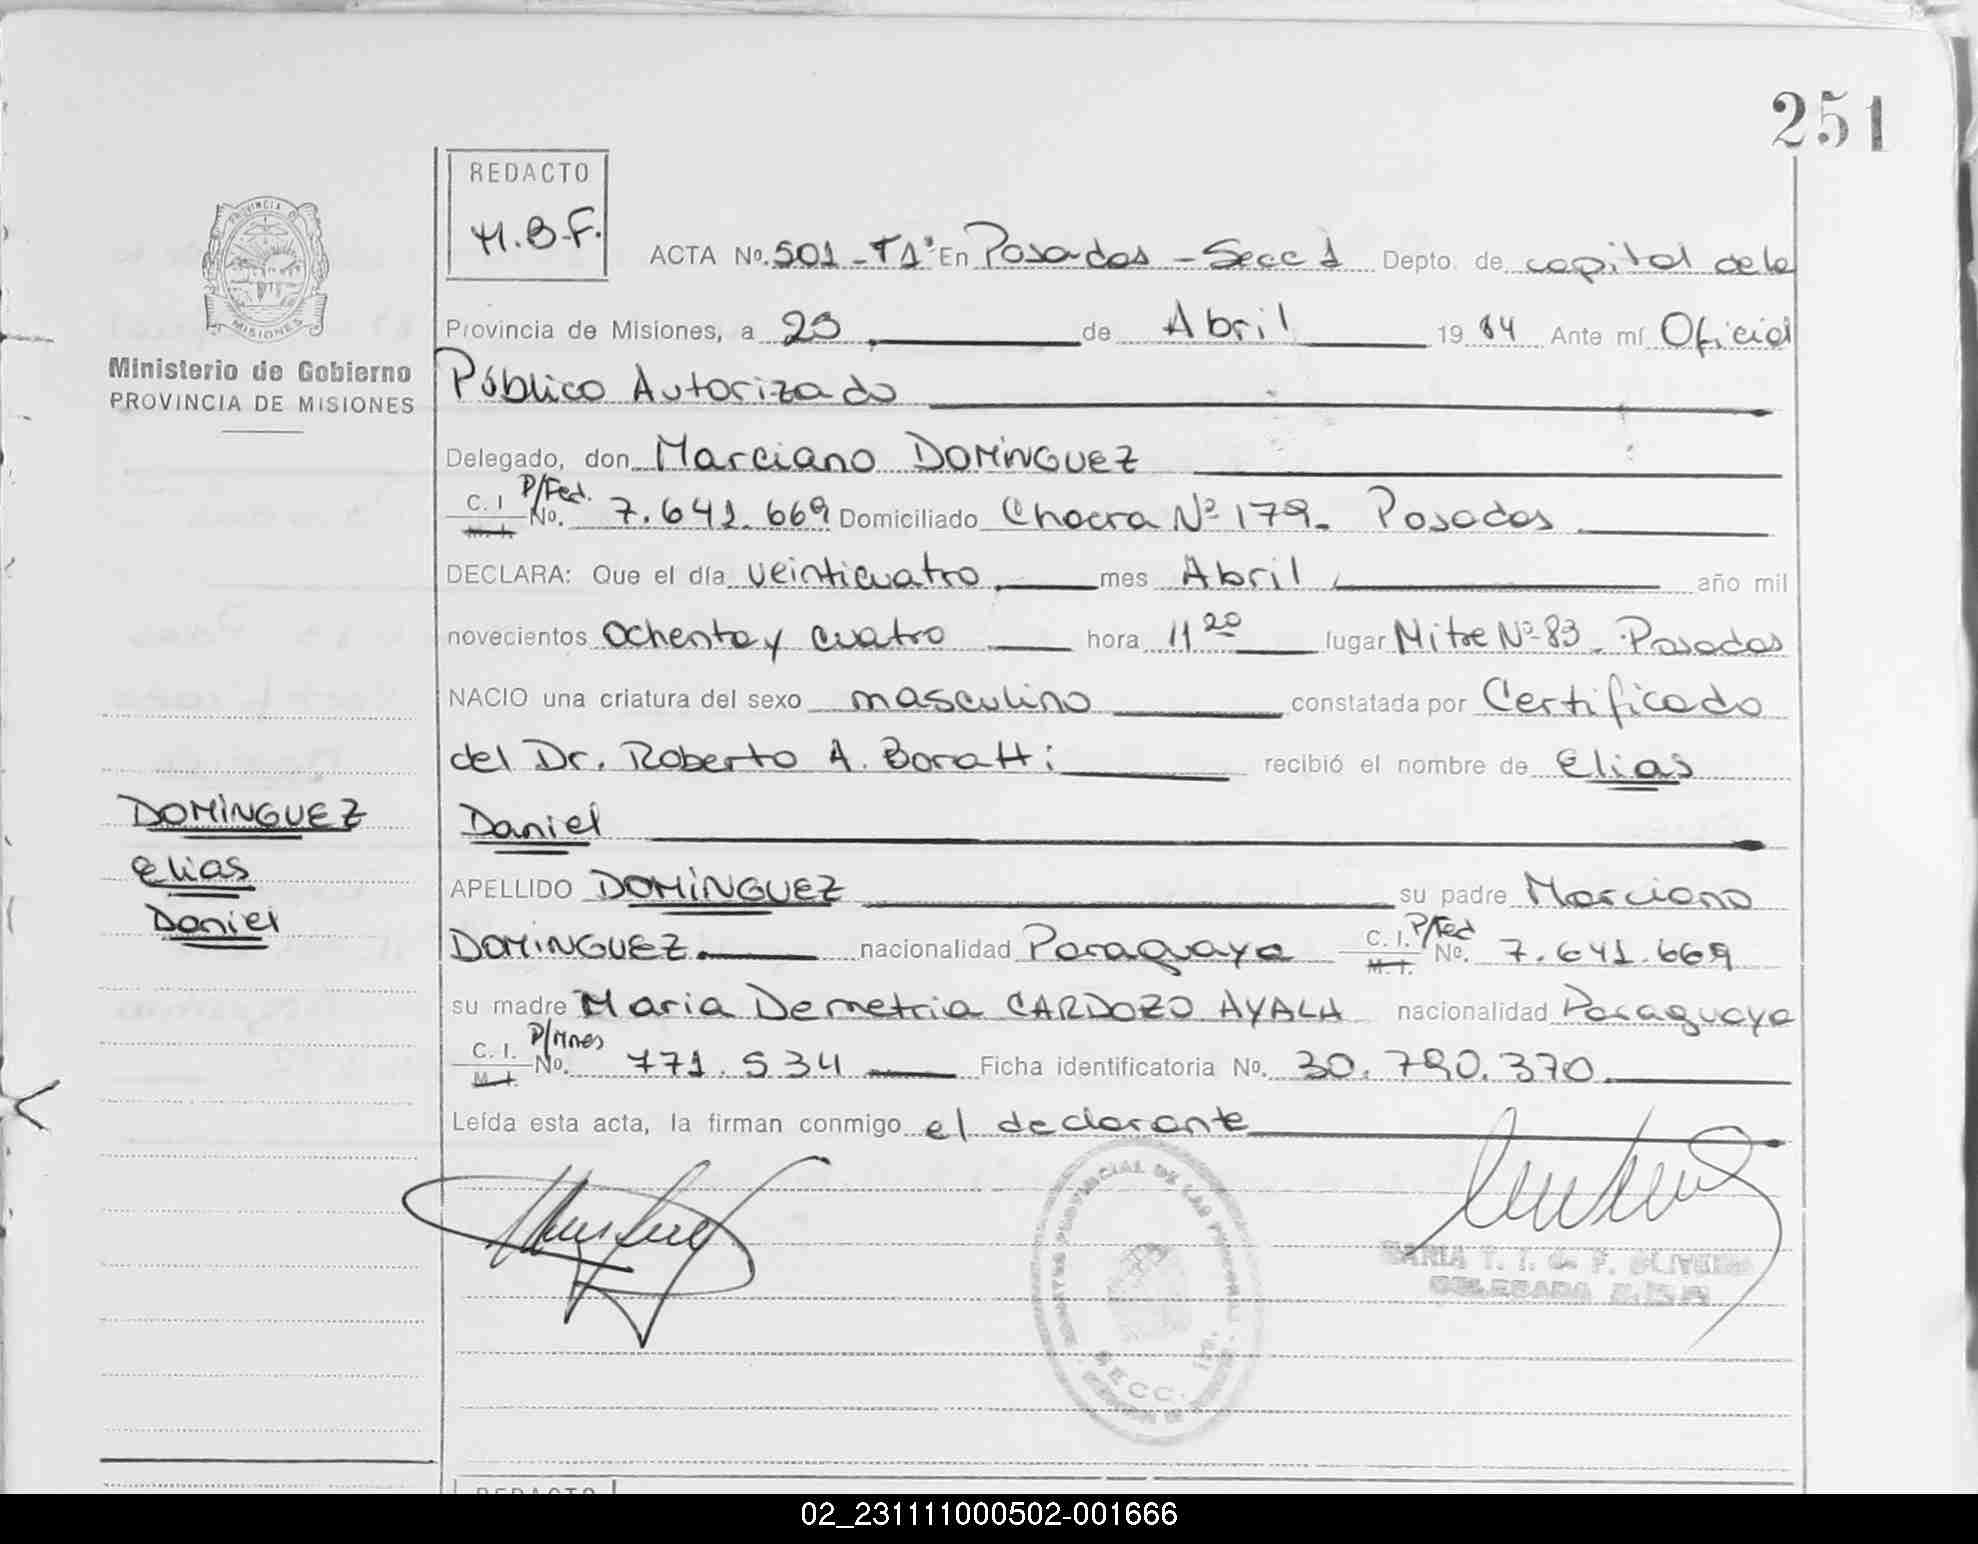 251
REDACTO
M.B.F.
PROVINCIA D
MISIONES
Ministerio de Gobierno
PROVINCIA DE MISIONES
ACTA No. 501 - T1º En Posadas - Secc 1 Depto. de capital de la
Provincia de Misiones, a de Abril 1984 Ante mí Oficial
Público Autorizado
Delegado, don Marciano DOMÍNGUEZ
C. I. M. I. P/Fed. No. 7.641.669 Domiciliado Chacra Nº 179. Posadas
DECLARA: Que el día veinticuatro mes Abril año mil
novecientos ochenta y cuatro hora 11 20 lugar Mitre Nº 83. Posadas
NACIO una criatura del sexo masculino constatada por Certificado
del Dr. Roberto A. Boratti recibió el nombre de Elias
Daniel
APELLIDO DOMÍNGUEZ su padre Marciano
DOMINGUEZ nacionalidad Paraguaya C. I. M. I. P/Fed No. 7.641.669
su madre Maria Demetria CARDOZO AYALA nacionalidad Paraguaya
C. I. M. I. P/Mnes No. 771.534 Ficha identificatoria No. 30.790.370.
Leída esta acta, la firman conmigo el declarante
DOMÍNGUEZ
Elias
Daniel
PROVINCIAL DE LAS PERSONAS
SECC. 1ra.
MARIA T. I. de F. OLIVEIRA
DELEGADA
REDACTO
02_231111000502-001666